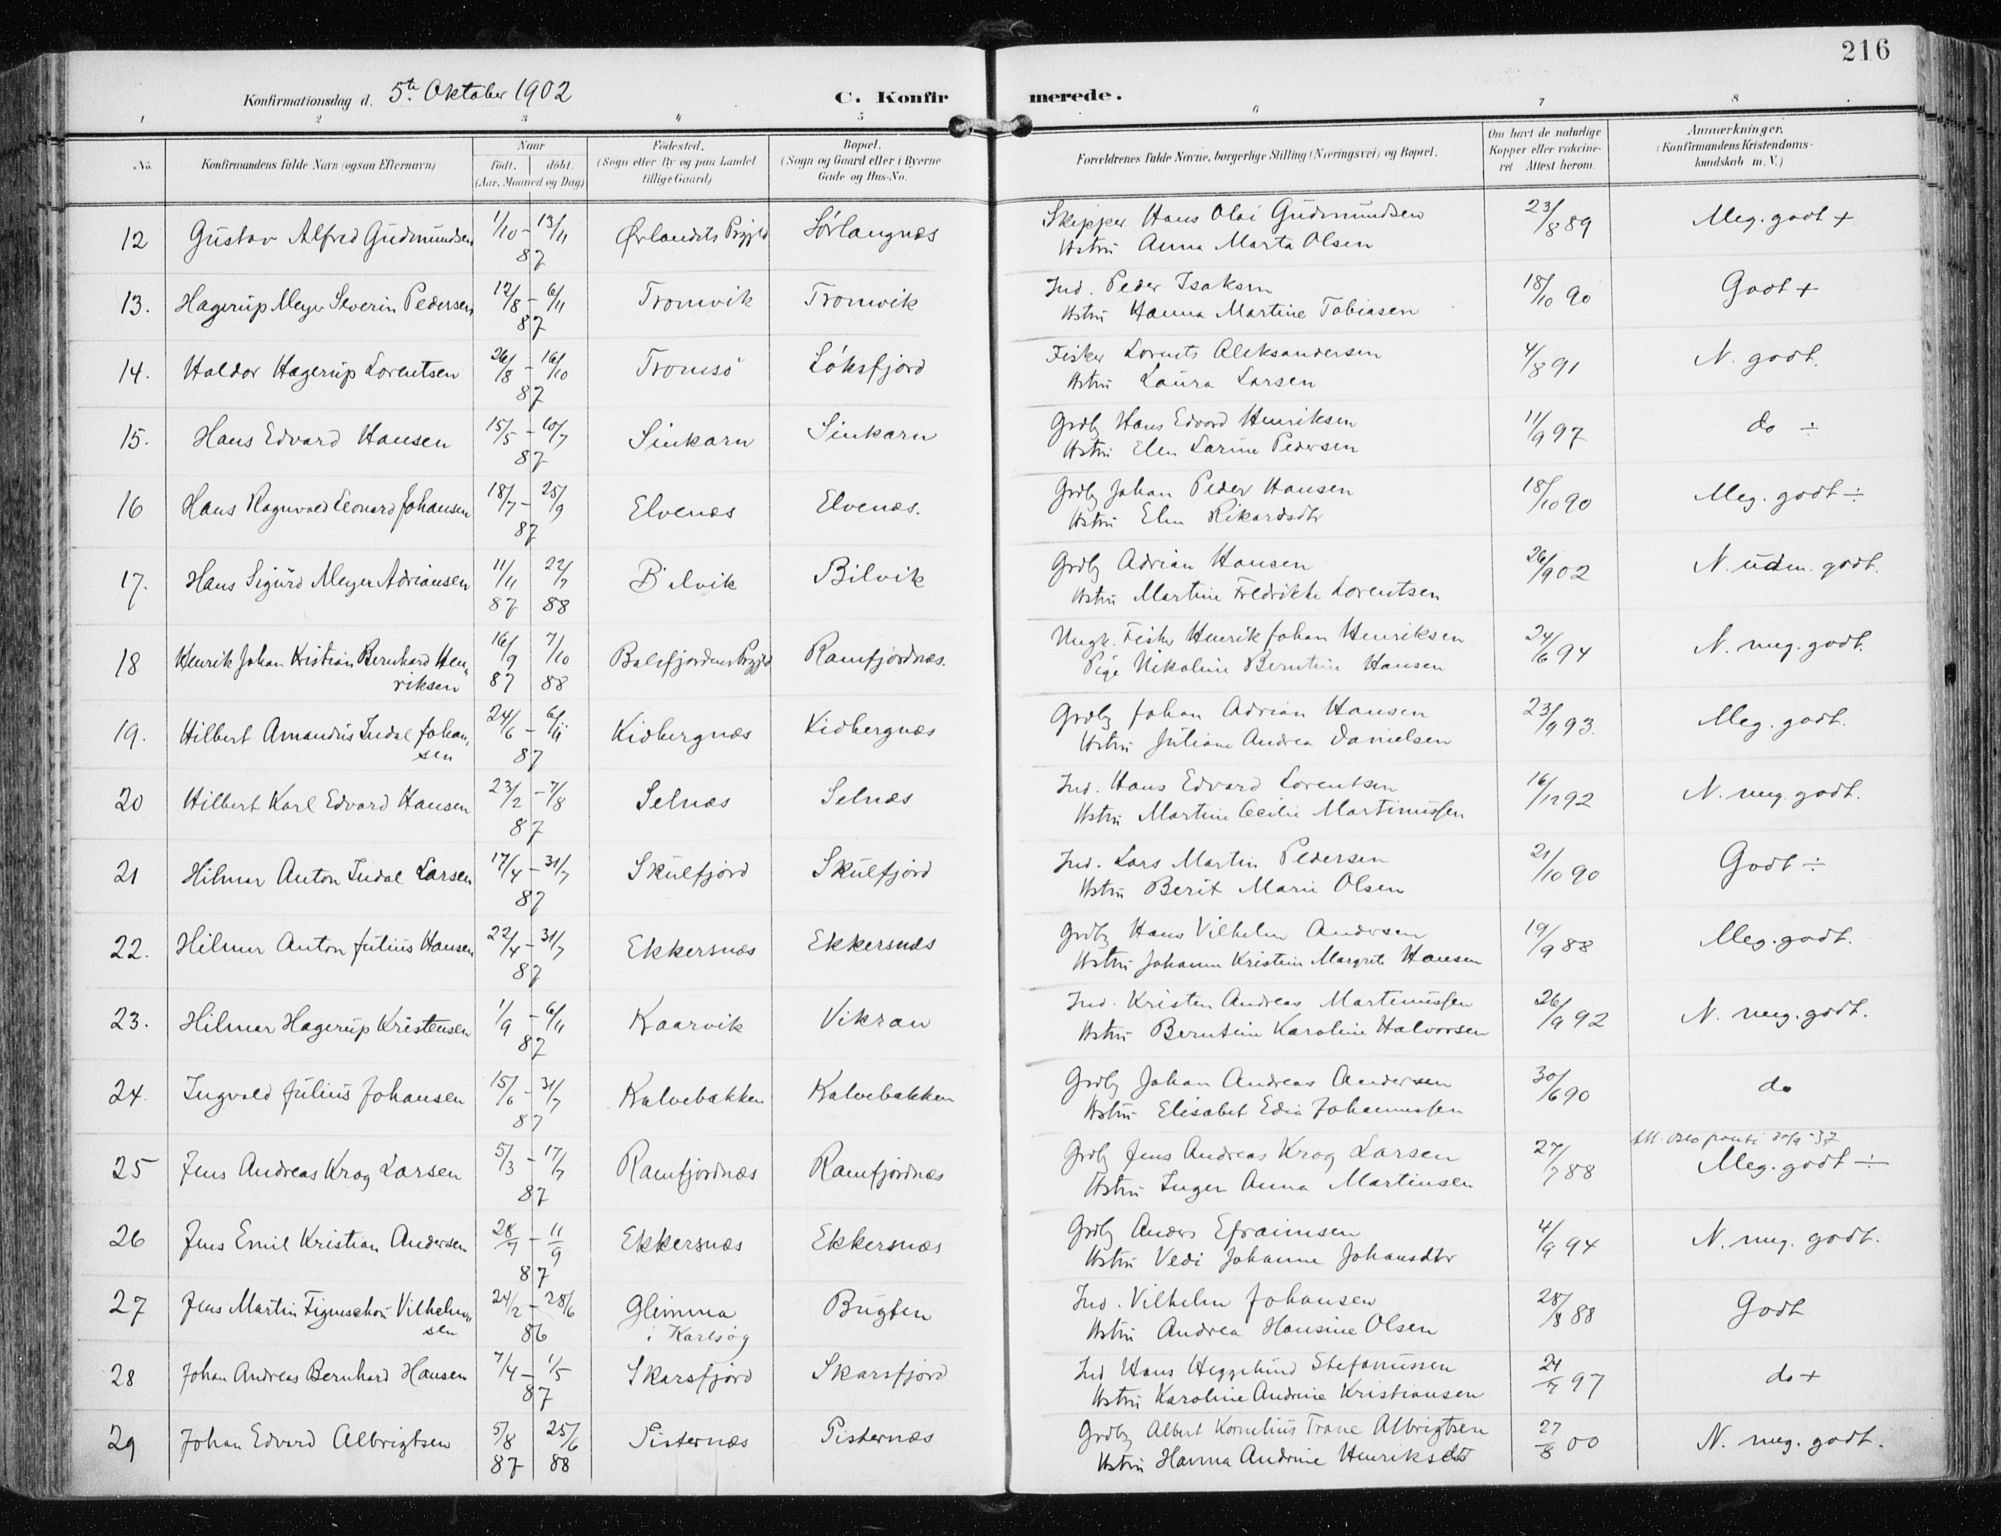 216
Konfirmationsdag d. 5te Oktober 1902
C. Konfirmerede.
1 2 3 4 5 6 7 8
No. Konfirmandens fulde Navn (ogsaa Efternavn) Naar født. døbt. (Aar, Maaned og Dag) Fødested. (Sogn eller By og paa Landet tillige Gaard) Bopæl. (Sogn og Gaard eller i Byerne Gade og Hus-No. Forældrenes fulde Navne, borgerlige Stilling (Næringsvei) og Bopæl. Om havt de naturlige Kopper eller vakcineret Attest herom. Anmærkninger. (Konfirmandens Kristendomskundskab m. V.)
12 Gustav Alfred Gudmundsen 1/10 - 13/11 87 Ørlandets Prgjld Sørlangnæs Skipper Hans Olai Gudmundsen 23/8 89 Meg. godt +
Hstru Anna Marta Olsen
13. Hagerup Meyer Severin Pedersen 12/8 - 6/11 87 Tromvik Tromvik Ind. Peder Isaksen 18/10 90 Godt +
Hstru Hanna Martine Tobiasen
14. Haldor Hagerup Lorentsen 26/8 - 16/10 87 Tromsø Løksfjord Fisker Lorents Aleksandersen 4/8 91 N. godt.
Hstru Laura Larsen
15. Hans Edvard Hansen 15/5 - 10/7 87 Sinkarn Sinkarn Grdbg Hans Edvard Henriksen 11/9 97 do ÷
Hstru Elen Larine Pedersen
16 Hans Ragnvald Leonard Johansen 18/7 - 25/9 87 Elvenæs Elvenæs. Grdbg Johan Peder Hansen 18/10 90 Meg. godt ÷
Hstru Elen Rikardsdtr
17. Hans Sigurd Meyer Adriansen 11/11 87 22/7 88 Bilvik Bilvik Grdbg Adrian Hansen 26/9 02 N. udm. godt.
Hstru Martine Fredrikke Lorentsen
18 Henrik Johan Kristian Bernhard Henriksen 16/9 87 7/10 88 Balsfjordens Prgjld Ramfjordnæs. Ungk. Fisker Henrik Johan Henriksen 24/6 94 N. meg. godt.
Pige Nikoline Berntine Hansen
19. Hilbert Amandus Indal Johansen 24/6 - 6/11 87 Kidbergnæs Kidbergnæs Grdbg Johan Adrian Hansen 23/9 93. Meg. godt.
Hstru Juliane Andrea Danielsen
20 Hilbert Karl Edvard Hansen 23/2 - 7/8 87 Selnæs Selnæs Ind. Hans Edvard Lorentsen 16/12 92 N. meg. godt.
Hstru Martine Cecilie Martinussen
21 Hilmar Anton Indal Larsen 17/4 - 31/7 87 Skulfjord Skulfjord Ind. Lars Martin Pedersen 21/10 90 Godt ÷
Hstru Berit Marie Olsen
22. Hilmer Anton Julius Hansen 22/4 - 31/7 87 Ekkersnæs Ekkersnæs Grdbg Hans Vilhelm Andersen 19/9 88 Meg. godt.
Hstru Johanne Kristine Margrete Hansen
23. Hilmar Hagerup Kristensen 1/9 - 6/11 87 Kaarvik Vikran Ind. Kristen Andreas Martinussen 26/9 92 N. meg. godt.
Hstru Berntine Karoline Halvorsen
24. Ingvald Julius Johansen 15/6 - 31/7 87 Kalvebakken Kalvebakken Grdbg Johan Andreas Andersen 30/6 90 do
Hstru Elisabet Edia Johannessen
25 Jens Andreas Krog Larsen 5/3 - 17/7 87 Ramfjordnæs Ramfjordnæs Grdbg Jens Andreas Krog Larsen 27/7 88 Meg. godt ÷
Hstru Inger Anna Martinsen
26 Jens Emil Kristian Andersen 28/7 - 11/9 87 Ekkersnæs Ekkersnæs Grdbg Anders Efraimsen 4/9 94 N. meg. godt.
Hstru Vedi Johanne Johansdtr
27 Jens Martin Vilhelmsen 24/2 - 28/6 86 Glimma i Karlsøg Bugten Ind. Vilhelm Johansen 28/8 88 Godt
Hstru Andrea Hansine Olsen
28 Johan Andreas Bernhard Hansen 7/4 - 1/5 87 Skarsfjord Skarsfjord Ind Hans Heggelund Stefanussen 24/7 97 do +
Hstru Karoline Andrine Kristiansen
29 Johan Edvard Albrigtsen 5/8 87 25/6 88 Tisternæs Tisternæs Grdbg Albert Kornelius Trane Albrigtsen 27/8 00 N. meg. godt.
Hstru Hanna Andrine Henriksdtr